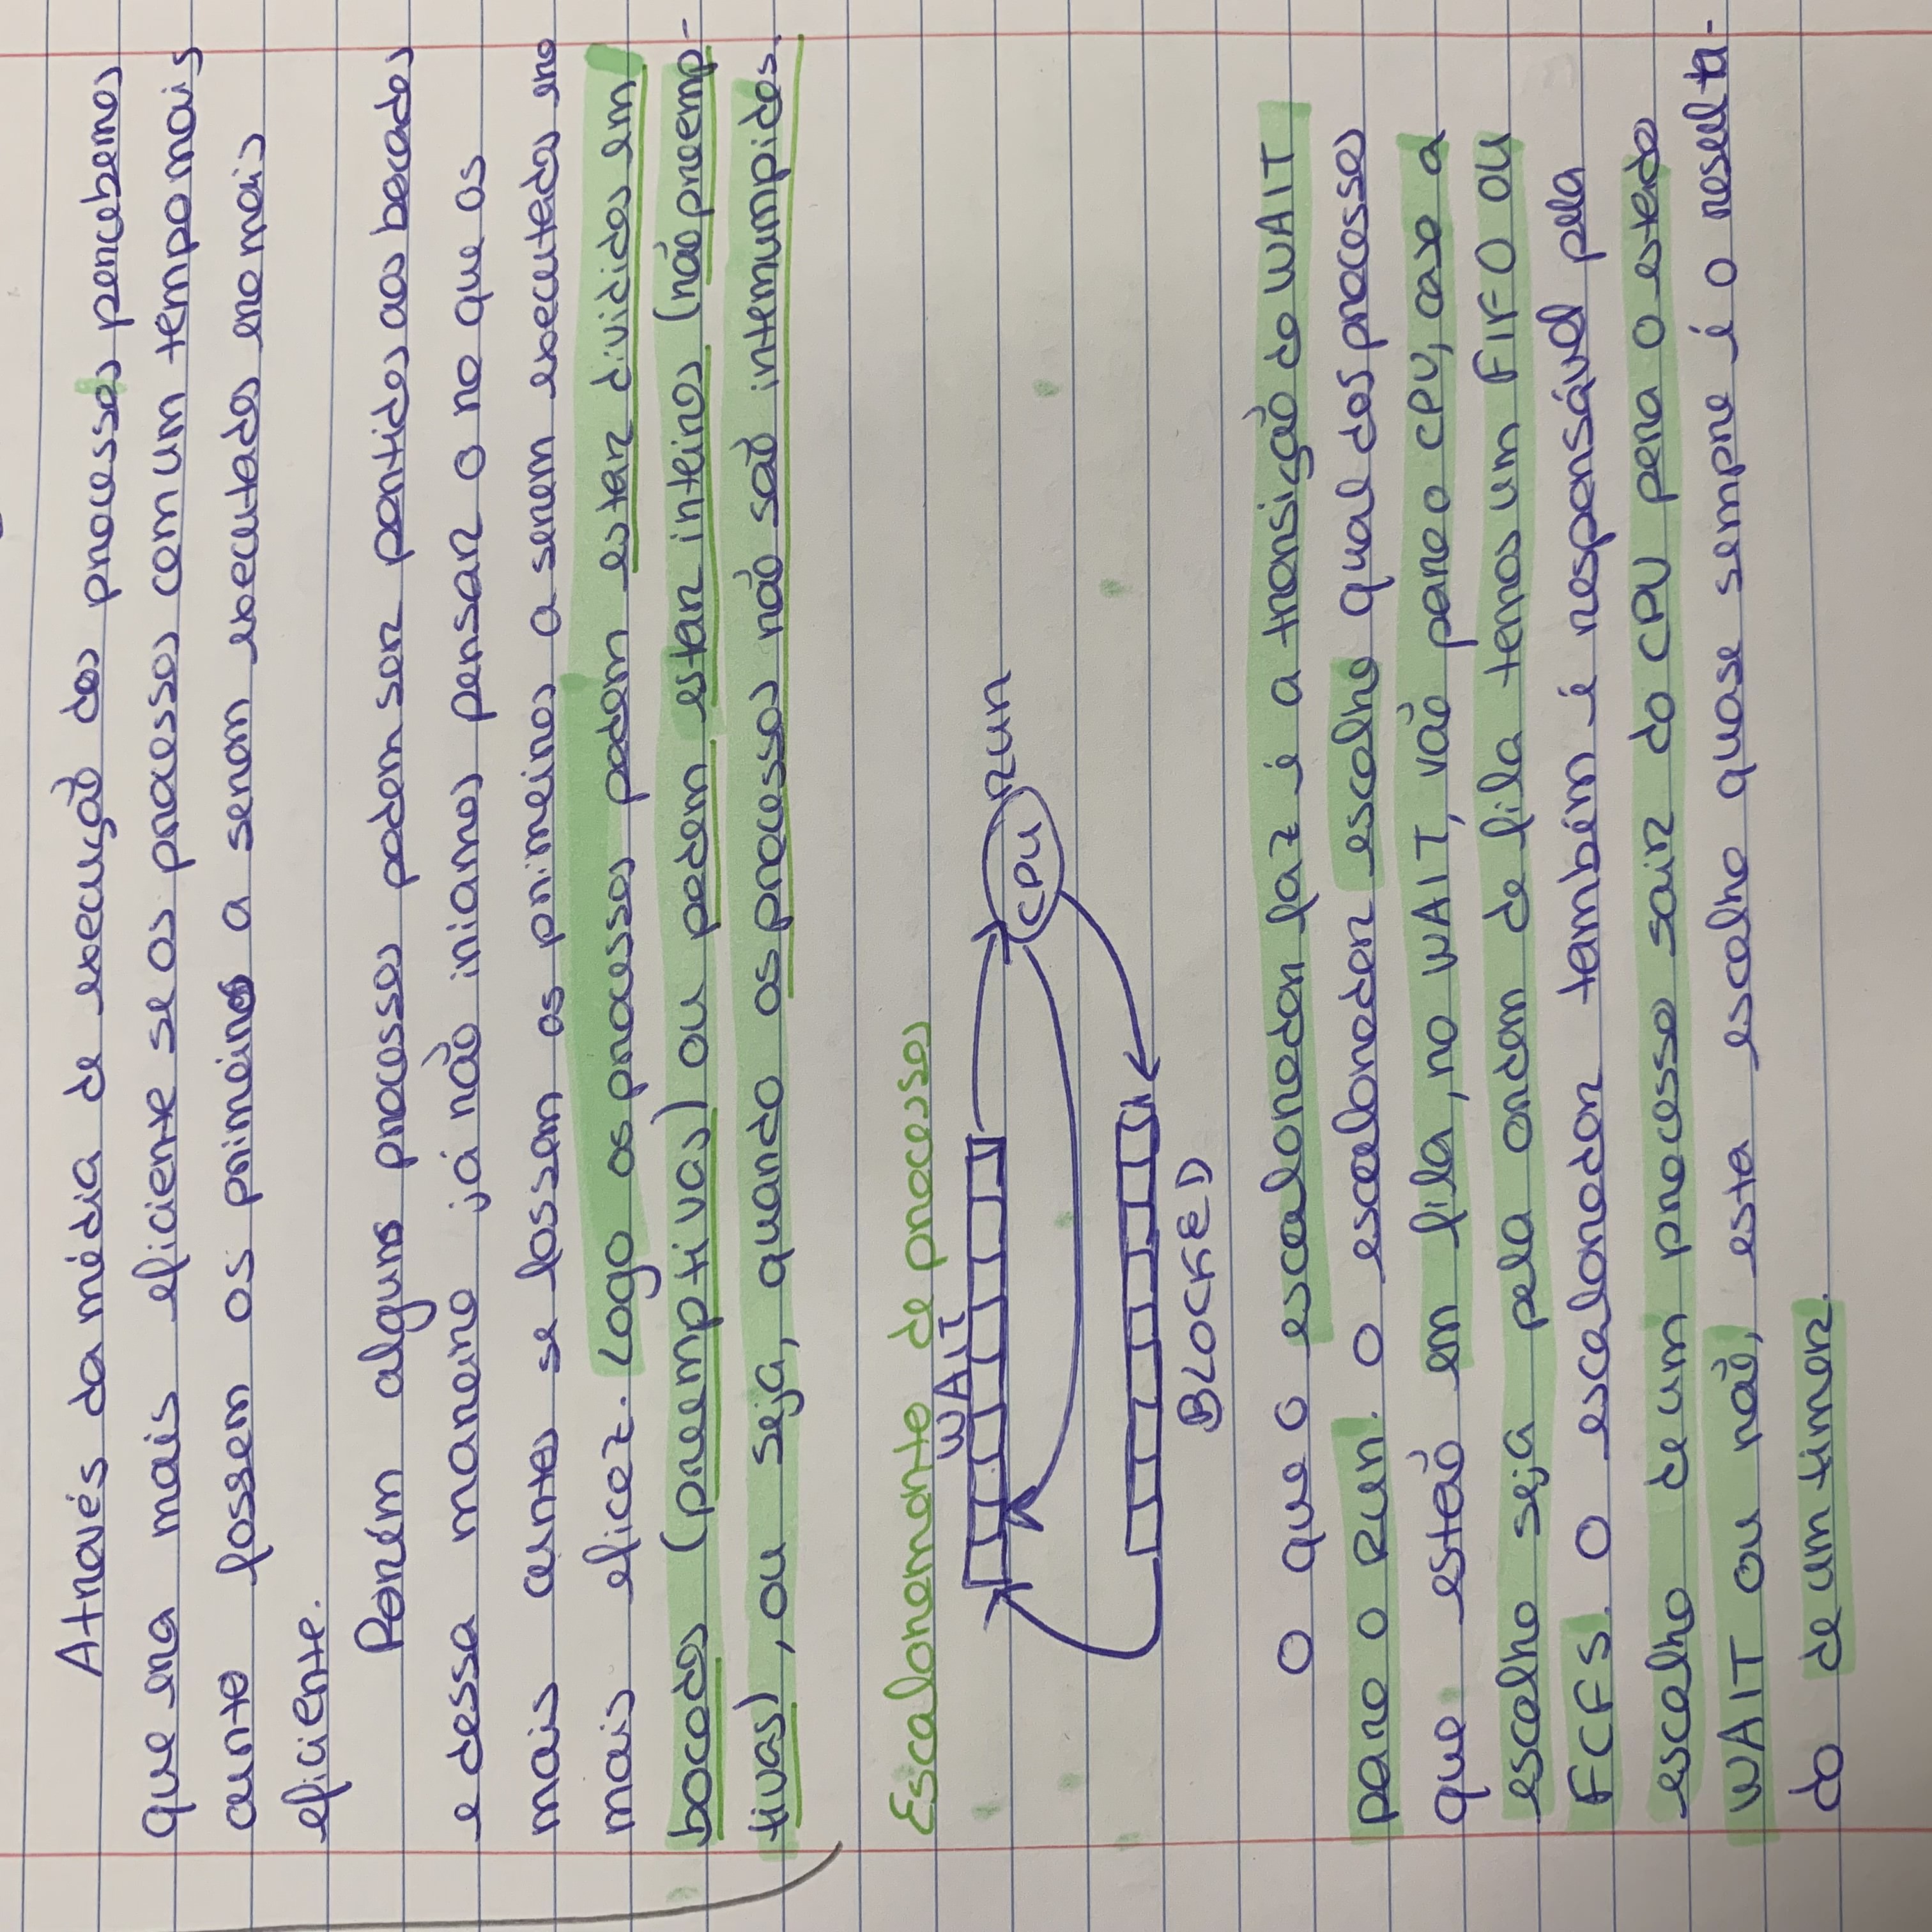 Através da média de execução dos processos percebemos
que era mais eficiente se os processos com um tempo mais
curto fossem os primeiros a serem executados era mais
eficiente.
Porém alguns processos podem ser partidos aos bocados
e dessa maneira já não iriamos pensar o no que os
mais curtos se fossem os primeiros a serem executados era
mais eficaz. Logo os processos podem estar divididos em
bocados (preemptivas) ou podem estar inteiros (não preemp-
tivas), ou seja, quando os processos não são interrumpidos.
Escalonamento de processos
WAIT
RUN
CPU
BLOCKED
O que o escalonador faz é a transição do WAIT
para o RUN. O escalonador escolhe qual dos processos
que estão em fila, no WAIT, vão para o CPU, caso a
escolha seja pela ordem de fila temos um FIFO ou
FCFS. O escalonador também é responsável pela
escolha de um processo sair do CPU para o estado
WAIT ou não, esta escolha quase sempre é o resulta-
do de um timer.